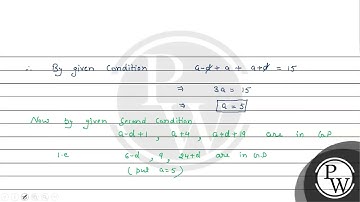 ∴ By given condition a-d + a + a+d = 15
⇒ 3a = 15
⇒ a = 5
Now by given second condition
a-d+1 , a+4 , a+d+19 are in G.P
i.e 6-d , 9 , 24+d are in G.P
(put a=5)
PW